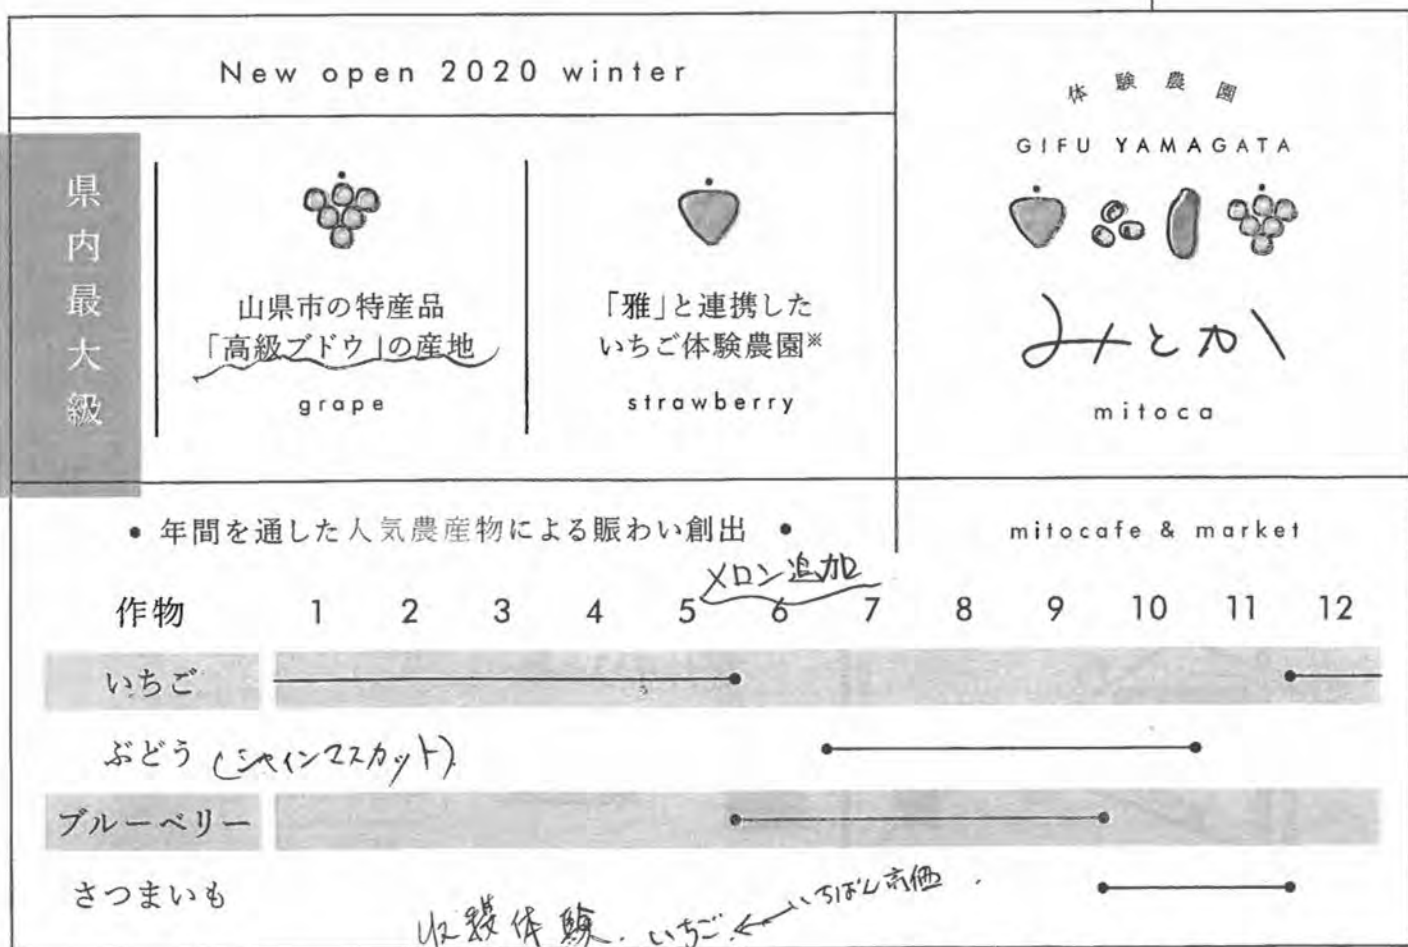 New open 2020 winter
県内最大級
山県市の特産品
「高級ブドウ」の産地
grape
「雅」と連携した
いちご体験農園※
strawberry
体験農園
GIFU YAMAGATA
みとか
mitoca
• 年間を通した人気農産物による賑わい創出 •
mitocafe & market
メロン追加
作物 1 2 3 4 5 6 7 8 9 10 11 12
いちご
ぶどう (シャインマスカット)
ブルーベリー
さつまいも
収穫体験. いちご ← いちばん高価.